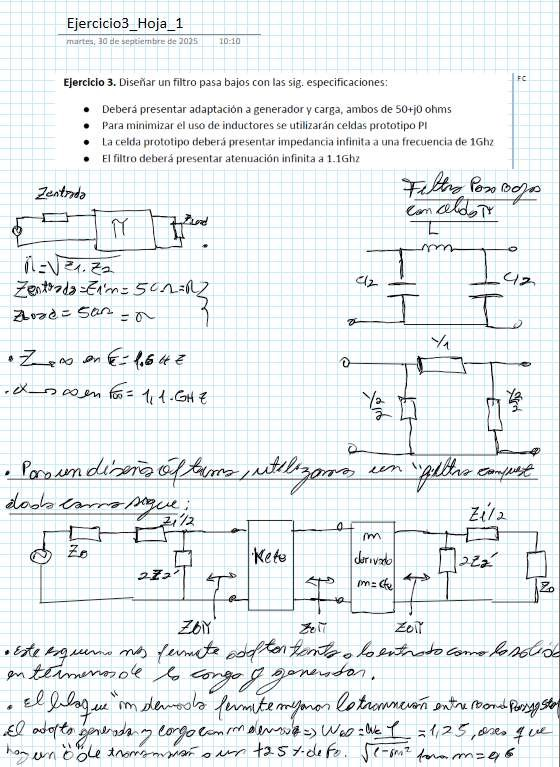 Ejercicio3_Hoja_1
martes, 30 de septiembre de 2025 10:10
Ejercicio 3. Diseñar un filtro pasa bajos con las sig. especificaciones:
FC
● Deberá presentar adaptación a generador y carga, ambos de 50+j0 ohms
● Para minimizar el uso de inductores se utilizarán celdas prototipo PI
● La celda prototipo deberá presentar impedancia infinita a una frecuencia de 1Ghz
● El filtro deberá presentar atenuación infinita a 1.1Ghz
Zentrada
π
Zload
Filtro Pasa Bajos
con celda π
L
C/2
C/2
= √Z1.Z2
Zentrada = = 50Ω =
Zload = 50Ω =
Y1
Y2/2
Y2/2
• Z → ∞ en
• α → ∞ en f∞ = 1,1 GHZ
• Para un diseño, utilizamos un "filtro
como sigue:
Z0
Z1'/2
2Z2'
Kcte
m
derivado
m = cte
Z1'/2
2Z2'
Z0
Z0π
Z0π
Z0π
• Este esquema nos permite adaptar tanto a la entrada como la salida
en términos de la carga y generador.
• El bloque "m derivado permite mejorar la transición entre
El adapta generador y carga con m = 1,25, que
hay un "0" de transmisión a un +25% de para m = 0,6